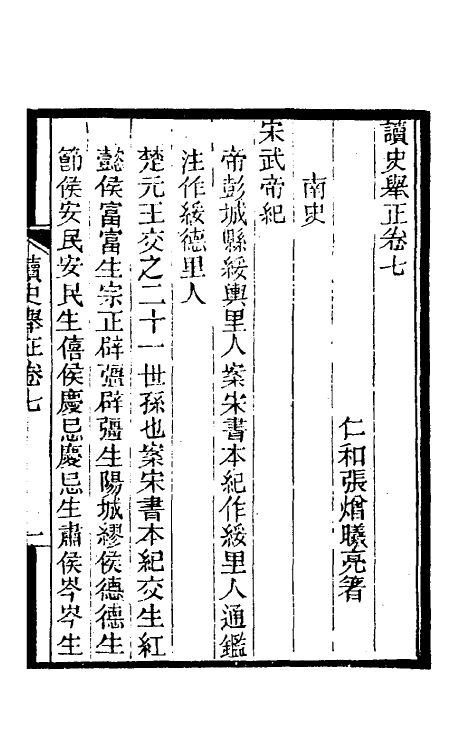 讀史舉正卷七
仁和張熷曦亮著
南史
宋武帝紀
帝彭城縣綏輿里人案宋書本紀作綏里人通鑑
注作綏德里人
楚元王交之二十一世孫也案宋書本紀交生紅
懿侯富富生宗正辟彊辟彊生陽城繆侯德德生
節侯安民安民生僖侯慶忌慶忌生肅侯岑岑生
讀史舉正卷七
一